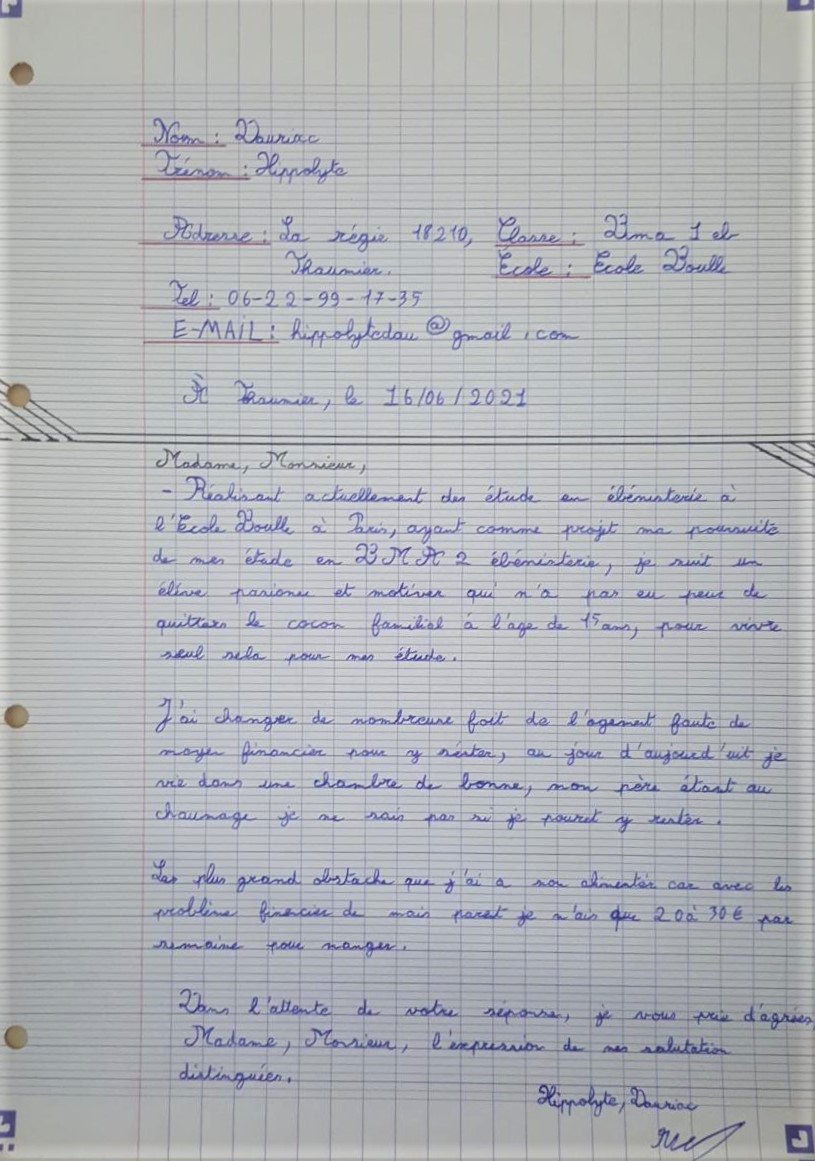 Nom : Dauriac
Prénom : Hippolyte
Adresse : La régie 18210, Classe : Dma 1 eb
Thaumier. École : École Boulle
Tel : 06-22-99-17-35
E-MAIL : hippolytedau@gmail.com
À Thaumier, le 16/06/2021
Madame, Monsieur,
- Réalisant actuellement des étude en ébénisterie à
l'École Boulle à Paris, ayant comme projet ma poursuite
de mes étude en DMA 2 ébénisterie, je suit un
élève passionée et motiver qui n'a pas eu peur de
quitters le cocon familial à l'âge de 15 ans, pour vivre
seul sela pour mes étude.
J'ai changer de nombreuse foit de l'ogement faute de
moyen financier pour y réster, au jour d'aujourd'uit je
vie dans une chambre de bonne, mon père étant au
chaumage je ne sais pas si je pouret y rester.
Les plus grand obstache que j'ai a alimentér car avec les
problème finencier de mais paret je n'ais que 20 à 30 € par
semaine pour manger.
Dans l'attente de votre réponse, je vous prie d'agréer,
Madame, Monsieur, l'expression de mes salutation
distinguées.
Hippolyte, Dauriac